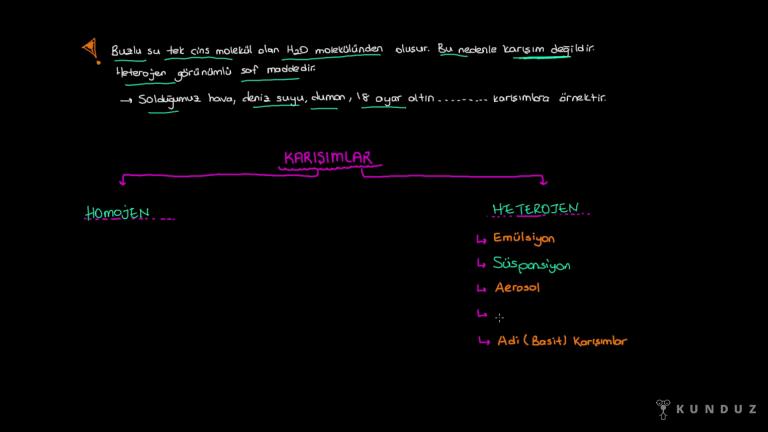 Buzlu su tek cins molekül olan H2O molekülünden oluşur. Bu nedenle karışım değildir.
Heterojen görünümlü saf maddedir.
→ Soluduğumuz hava, deniz suyu, duman, 18 ayar altın .......... karışımlara örnektir.
KARIŞIMLAR
HOMOJEN
HETEROJEN
↳ Emülsiyon
↳ Süspansiyon
↳ Aerosol
↳
↳ Adi (Basit) Karışımlar
KUNDUZ